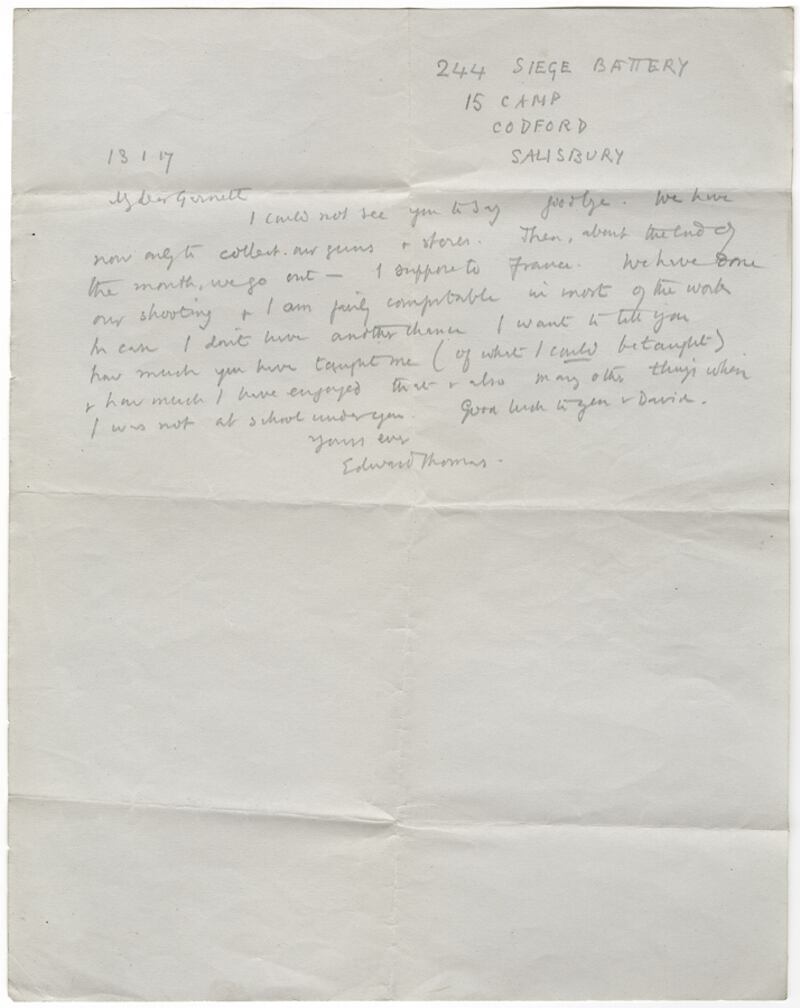 244 SIEGE BATTERY
15 CAMP
CODFORD
SALISBURY
13 1 17
My dear Garnett
I could not see you to say goodbye. We have
now only to collect our guns & stores. Then, about the end of
the month, we go out — I suppose to France. We have done
our shooting & I am fairly comfortable in most of the work
In case I don't have another chance I want to tell you
how much you have taught me (of what I could be taught)
& how much I have enjoyed that & also many other things when
I was not at school under you. Good luck to you & David.
Yours ever
Edward Thomas.